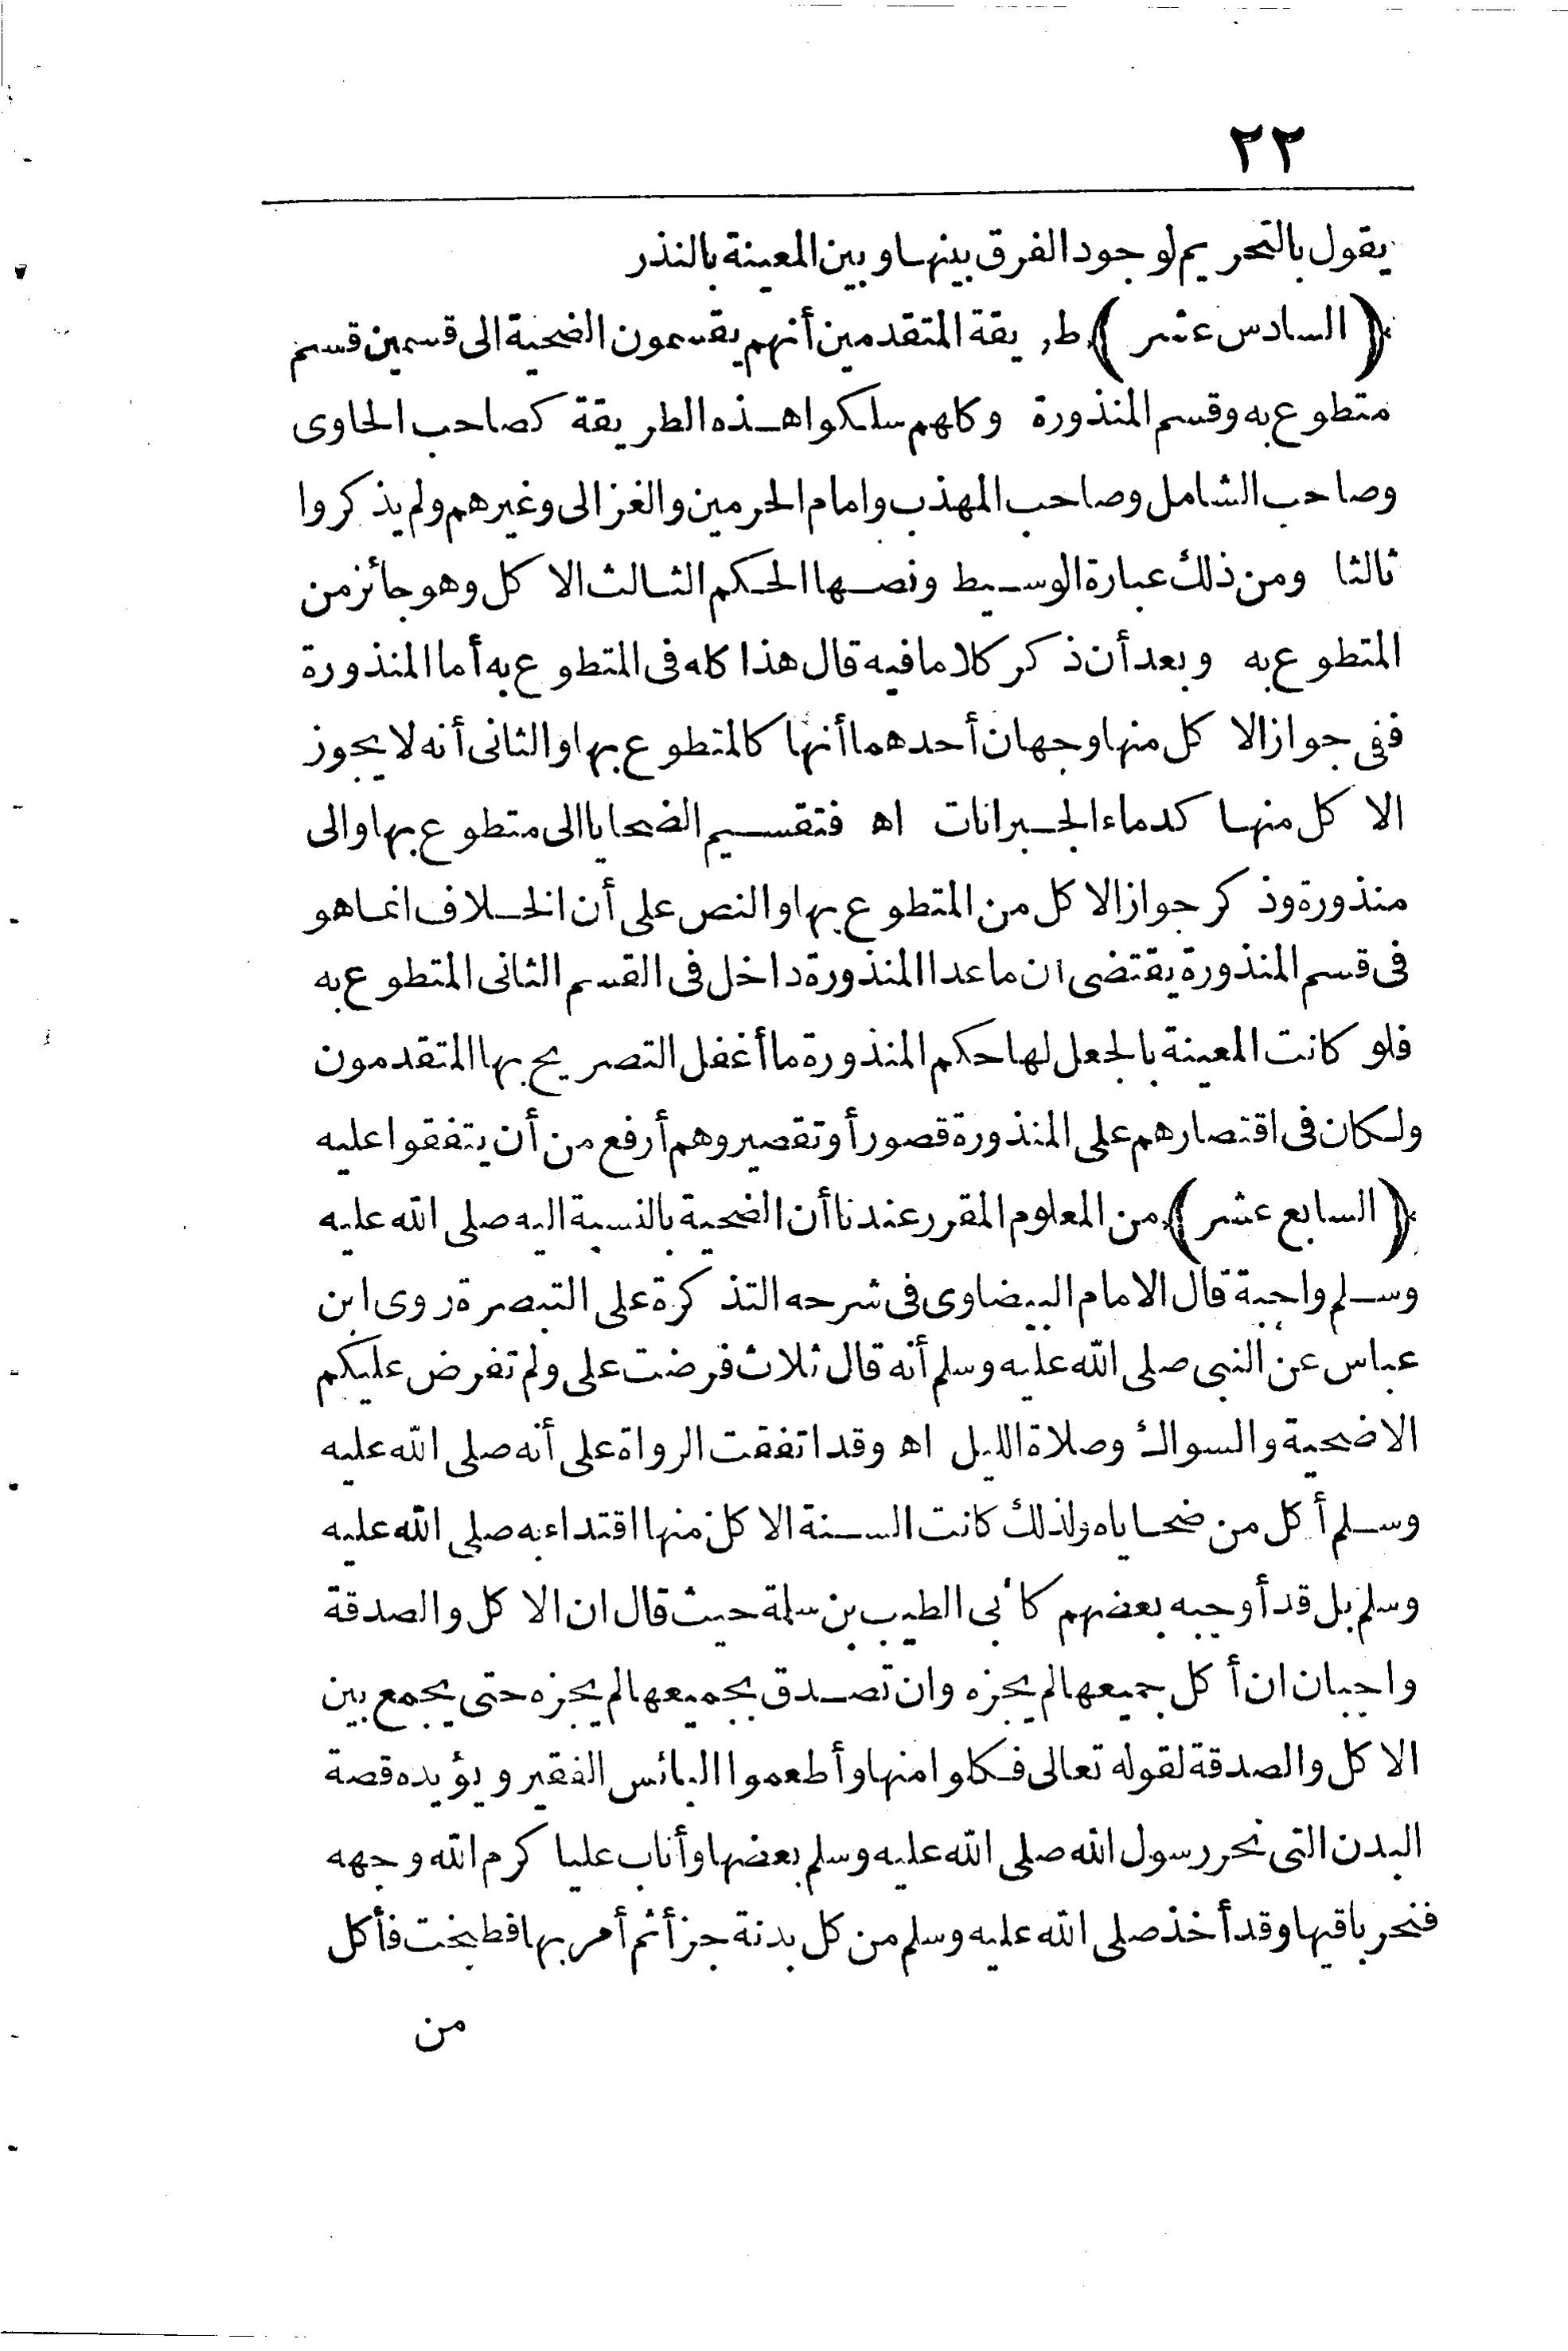 ٢٢
يقول بالتحريم لوجود الفرق بينها وبين المعينة بالنذر
﴿السادس عشر﴾ طريقة المتقدمين أنهم يقسمون الضحية الى قسمين قسم
متطوع به وقسم المنذورة وكلهم سلكوا هذه الطريقة كصاحب الحاوى
وصاحب الشامل وصاحب المهذب وامام الحرمين والغزالى وغيرهم ولم يذكروا
ثالثا ومن ذلك عبارة الوسيط ونصها الحكم الثالث الاكل وهو جائز من
المتطوع به وبعد أن ذكر كلاما فيه قال هذا كله فى المتطوع به أما المنذورة
ففى جواز الاكل منها وجهان أحدهما أنها كالمتطوع بها والثانى أنه لا يجوز
الاكل منها كدماء الجبرانات اه فتقسيم الضحايا الى متطوع بها والى
منذورة وذكر جواز الاكل من المتطوع بها والنص على أن الخلاف انما هو
فى قسم المنذورة يقتضى ان ما عدا المنذورة داخل فى القسم الثانى المتطوع به
فلو كانت المعينة بالجعل لها حكم المنذورة ما أغفل التصريح بها المتقدمون
ولكان فى اقتصارهم على المنذورة قصور أو تقصير وهم أرفع من أن يتفقوا عليه
﴿السابع عشر﴾ من المعلوم المقرر عندنا أن الضحية بالنسبة اليه صلى الله عليه
وسلم واجبة قال الامام البيضاوى فى شرحه التذكرة على التبصرة روى ابن
عباس عن النبى صلى الله عليه وسلم أنه قال ثلاث فرضت على ولم تفرض عليكم
الاضحية والسواك وصلاة الليل اه وقد اتفقت الرواة على أنه صلى الله عليه
وسلم أكل من ضحاياه ولذلك كانت السنة الاكل منها اقتداء به صلى الله عليه
وسلم بل قد أوجبه بعضهم كأبى الطيب بن سلمة حيث قال ان الاكل والصدقة
واجبان ان أكل جميعها لم يجزه وان تصدق بجميعها لم يجزه حتى يجمع بين
الاكل والصدقة لقوله تعالى فكلوا منها وأطعموا البائس الفقير ويؤيده قصة
البدن التى نحر رسول الله صلى الله عليه وسلم بعضها وأناب عليا كرم الله وجهه
فنحر باقيها وقد أخذ صلى الله عليه وسلم من كل بدنة جزأ ثم أمر بها فطبخت فأكل
من